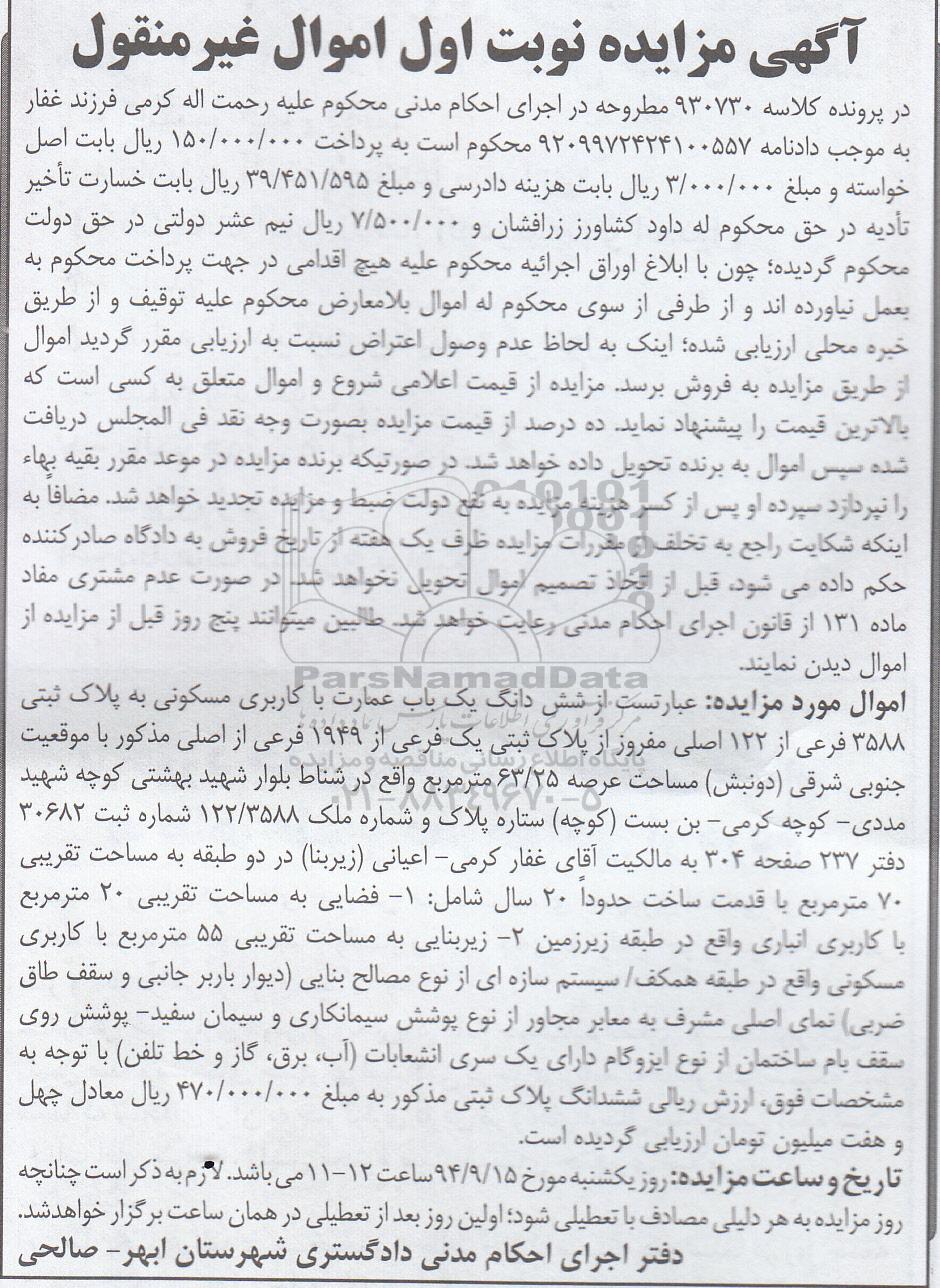 آگهی مزایده نوبت اول اموال غیرمنقول
در پرونده کلاسه ۹۳۰۷۳۰ مطروحه در اجرای احکام مدنی محکوم علیه رحمت اله کرمی فرزند غفار
به موجب دادنامه ۹۲۰۹۹۷۲۴۲۴۱۰۰۵۵۷ محکوم است به پرداخت ۱۵۰/۰۰۰/۰۰۰ ریال بابت اصل
خواسته و مبلغ ۳/۰۰۰/۰۰۰ ریال بابت هزینه دادرسی و مبلغ ۳۹/۴۵۱/۵۹۵ ریال بابت خسارت تأخیر
تأدیه در حق محکوم له داود کشاورز زرافشان و ۷/۵۰۰/۰۰۰ ریال نیم عشر دولتی در حق دولت
محکوم گردیده؛ چون با ابلاغ اوراق اجرائیه محکوم علیه هیچ اقدامی در جهت پرداخت محکوم به
بعمل نیاورده اند و از طرفی از سوی محکوم له اموال بلامعارض محکوم علیه توقیف و از طریق
خبره محلی ارزیابی شده؛ اینک به لحاظ عدم وصول اعتراض نسبت به ارزیابی مقرر گردید اموال
از طریق مزایده به فروش برسد. مزایده از قیمت اعلامی شروع و اموال متعلق به کسی است که
بالاترین قیمت را پیشنهاد نماید. ده درصد از قیمت مزایده بصورت وجه نقد فی المجلس دریافت
شده سپس اموال به برنده تحویل داده خواهد شد. در صورتیکه برنده مزایده در موعد مقرر بقیه بهاء
را نپردازد سپرده او پس از کسر هزینه مزایده به نفع دولت ضبط و مزایده تجدید خواهد شد. مضافاً به
اینکه شکایت راجع به تخلف و مقررات مزایده ظرف یک هفته از تاریخ فروش به دادگاه صادرکننده
حکم داده می شود، قبل از اتخاذ تصمیم اموال تحویل نخواهد شد. در صورت عدم مشتری مفاد
ماده ۱۳۱ از قانون اجرای احکام مدنی رعایت خواهد شد. طالبین میتوانند پنج روز قبل از مزایده از
اموال دیدن نمایند.
ParsNamadData
اموال مورد مزایده: عبارتست از شش دانگ یک باب عمارت با کاربری مسکونی به پلاک ثبتی
۳۵۸۸ فرعی از ۱۲۲ اصلی مفروز از پلاک ثبتی یک فرعی از ۱۹۴۹ فرعی از اصلی مذکور با موقعیت
پایگاه اطلاع رسانی مناقصه و مزایده
جنوبی شرقی (دونبش) مساحت عرصه ۶۳/۲۵ مترمربع واقع در شناط بلوار شهید بهشتی کوچه شهید
۰۲۱-۸۸۳۴۹۶۷۰-۵
مددی- کوچه کرمی- بن بست (کوچه) ستاره پلاک و شماره ملک ۱۲۲/۳۵۸۸ شماره ثبت ۳۰۶۸۲
دفتر ۲۳۷ صفحه ۳۰۴ به مالکیت آقای غفار کرمی- اعیانی (زیربنا) در دو طبقه به مساحت تقریبی
۷۰ مترمربع با قدمت ساخت حدوداً ۲۰ سال شامل: ۱- فضایی به مساحت تقریبی ۲۰ مترمربع
با کاربری انباری واقع در طبقه زیرزمین ۲- زیربنایی به مساحت تقریبی ۵۵ مترمربع با کاربری
مسکونی واقع در طبقه همکف/ سیستم سازه ای از نوع مصالح بنایی (دیوار باربر جانبی و سقف طاق
ضربی) نمای اصلی مشرف به معابر مجاور از نوع پوشش سیمانکاری و سیمان سفید- پوشش روی
سقف بام ساختمان از نوع ایزوگام دارای یک سری انشعابات (آب، برق، گاز و خط تلفن) با توجه به
مشخصات فوق، ارزش ریالی ششدانگ پلاک ثبتی مذکور به مبلغ ۴۷۰/۰۰۰/۰۰۰ ریال معادل چهل
و هفت میلیون تومان ارزیابی گردیده است.
تاریخ و ساعت مزایده: روز یکشنبه مورخ ۹۴/۹/۱۵ ساعت ۱۲-۱۱ می باشد. لازم به ذکر است چنانچه
روز مزایده به هر دلیلی مصادف با تعطیلی شود؛ اولین روز بعد از تعطیلی در همان ساعت برگزار خواهدشد.
دفتر اجرای احکام مدنی دادگستری شهرستان ابهر- صالحی